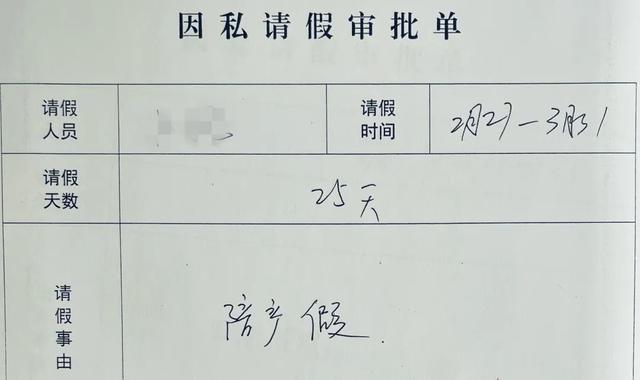 因私请假审批单
请假人员
请假时间
2月27—3月31
请假天数
25天
请假事由
陪产假